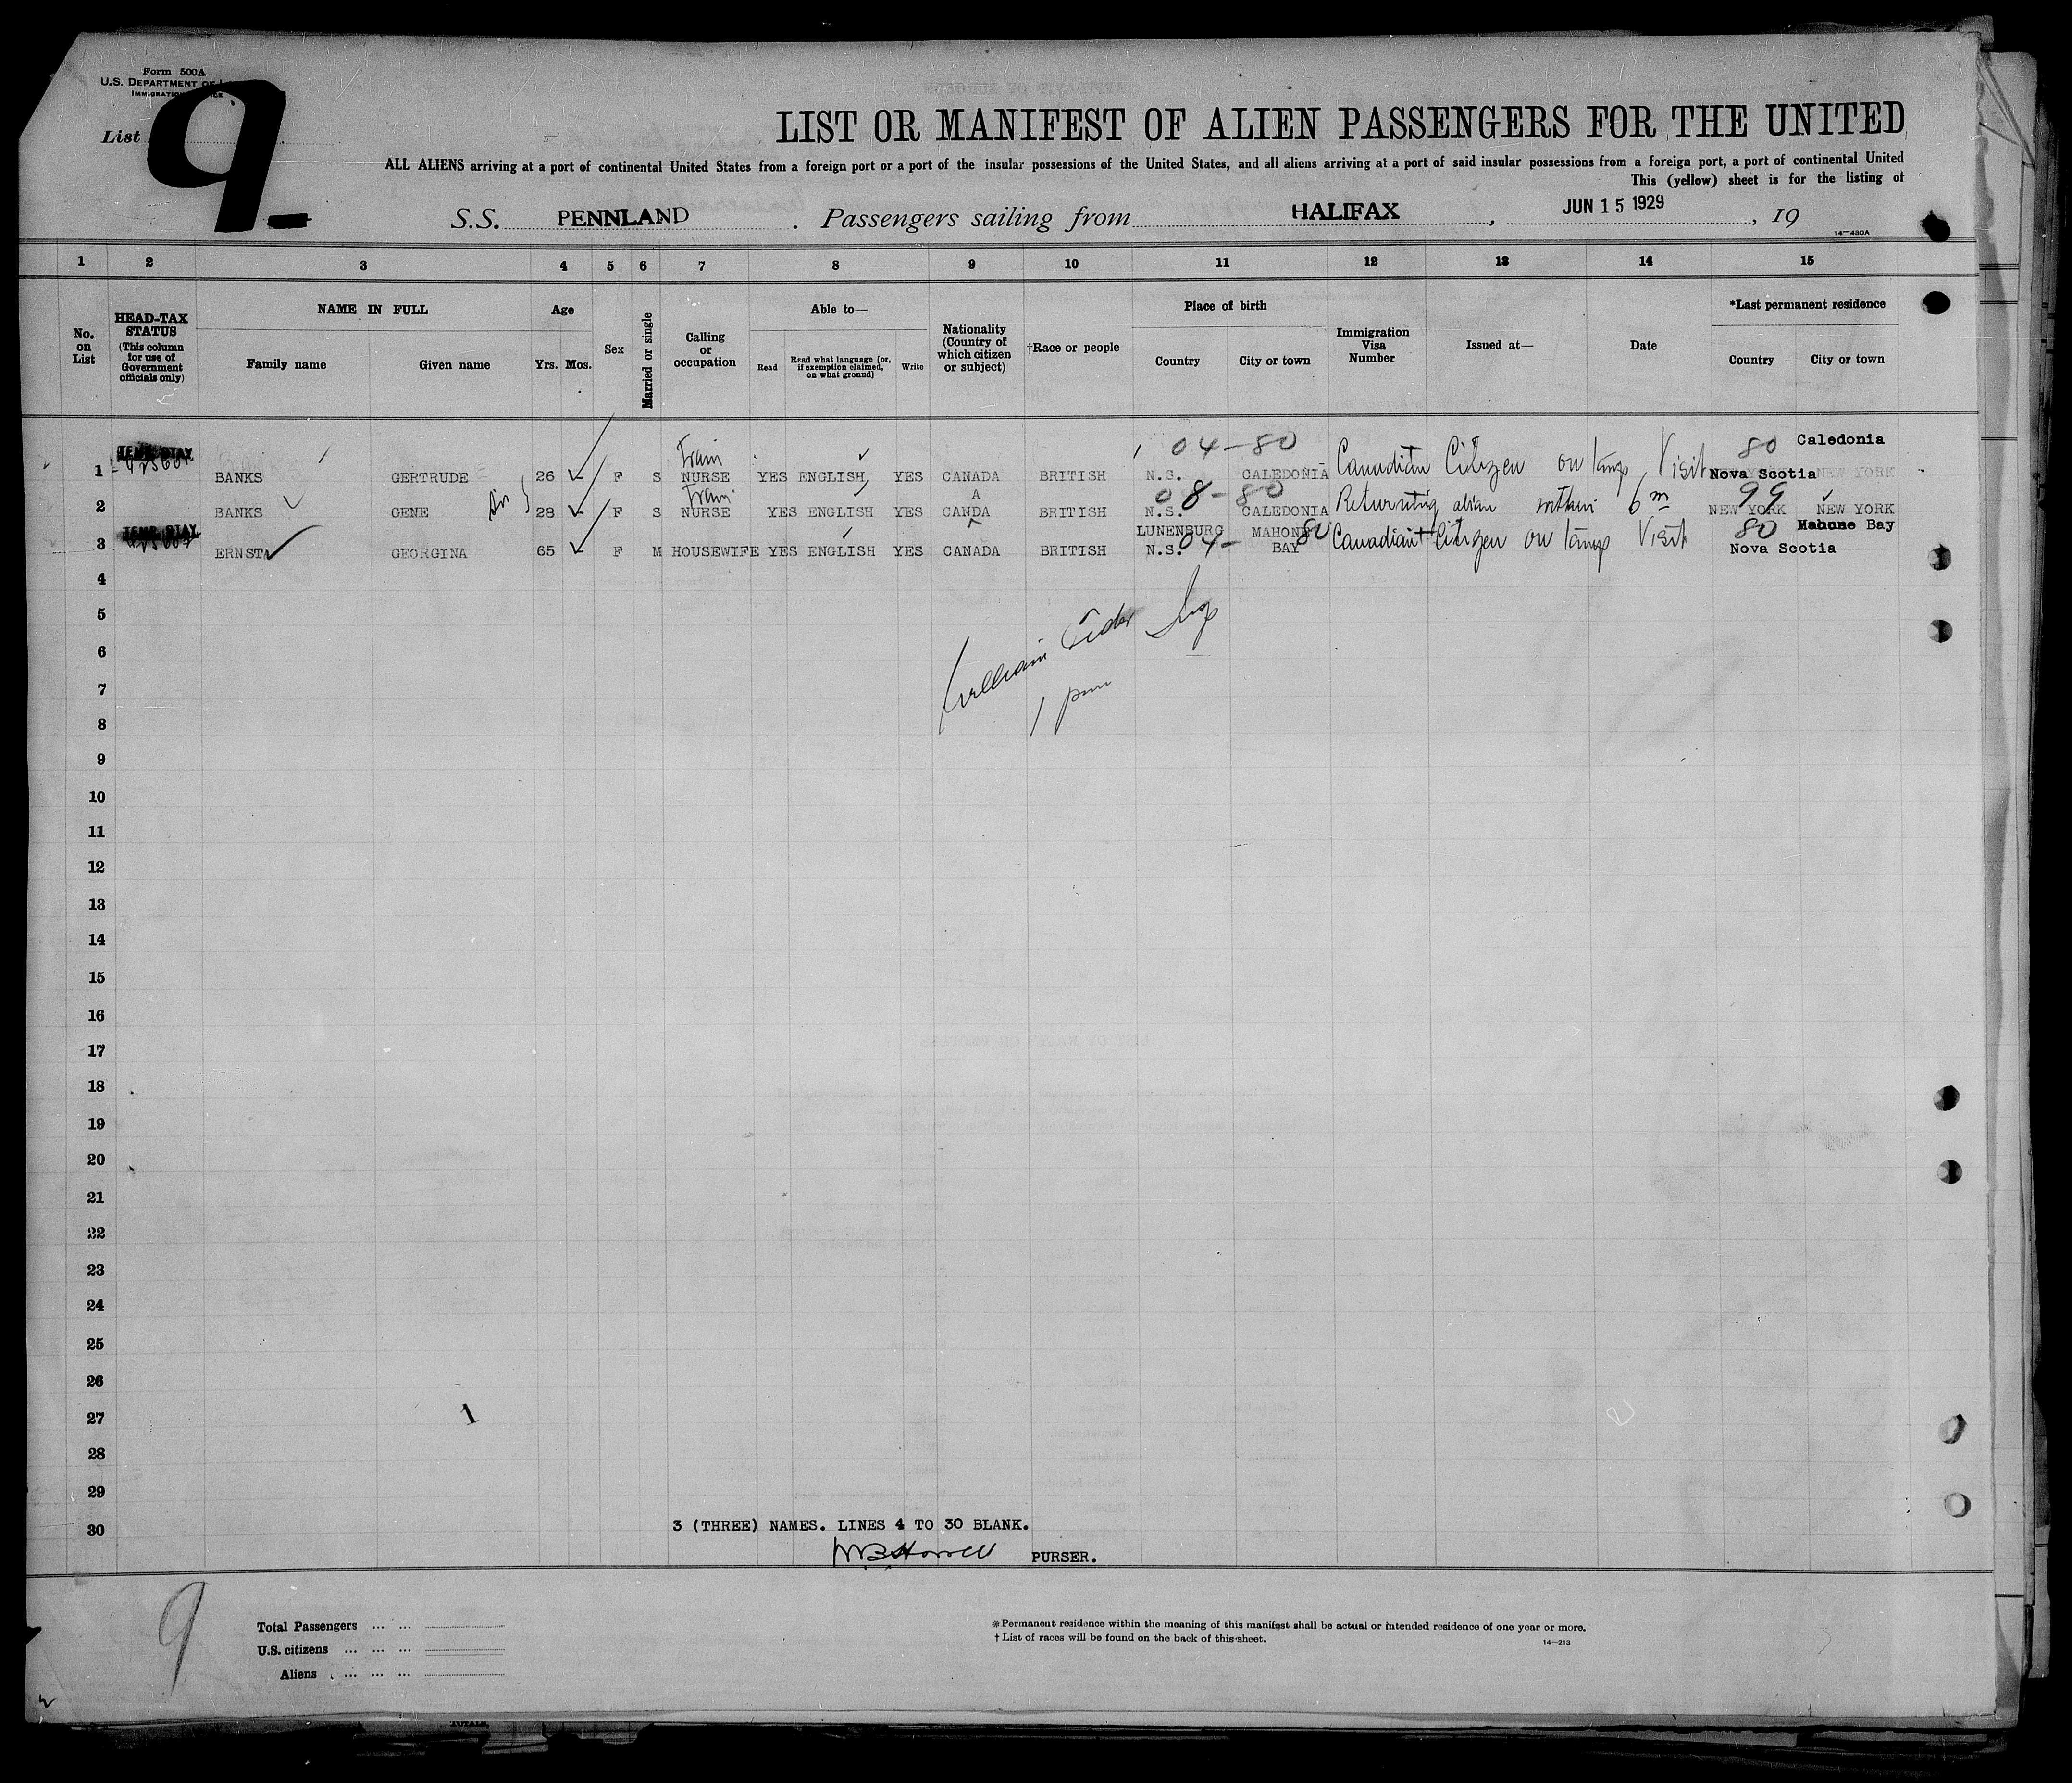 Form 500A
U.S. DEPARTMENT OF
IMMIGRATION
List 9
LIST OR MANIFEST OF ALIEN PASSENGERS FOR THE UNITED
ALL ALIENS arriving at a port of continental United States from a foreign port or a port of the insular possessions of the United States, and all aliens arriving at a port of said insular possessions from a foreign port, a port of continental United
This (yellow) sheet is for the listing of
S.S. PENNLAND . Passengers sailing from HALIFAX , JUN 15 1929 , 19
14—430A
1 2 3 4 5 6 7 8 9 10 11 12 13 14 15
No. on List
HEAD-TAX STATUS (This column for use of Government officials only)
NAME IN FULL
Family name Given name
Age
Yrs. Mos.
Sex
Married or single
Calling or occupation
Able to—
Read Read what language [or, if exemption claimed, on what ground] Write
Nationality (Country of which citizen or subject)
†Race or people
Place of birth
Country City or town
Immigration Visa Number
Issued at—
Date
*Last permanent residence
Country City or town
TEMP STAY Train 04-80 80 Caledonia
1 BANKS GERTRUDE 26 F S NURSE YES ENGLISH YES CANADA BRITISH N.S. CALEDONIA Canadian Citizen on temp Visit Nova Scotia NEW YORK
Train A 08-80 99
2 BANKS GENE 28 F S NURSE YES ENGLISH YES CANDA BRITISH N.S. CALEDONIA Returning alien within 6m NEW YORK NEW YORK
TEMP STAY LUNENBURG MAHONE 80 80 Mahone Bay
3 ERNST GEORGINA 65 F M HOUSEWIFE YES ENGLISH YES CANADA BRITISH N.S. 04- BAY Canadian Citizen on temp Visit Nova Scotia
4
5
6
7
8
9
10
11
12
13
14
15
16
17
18
19
20
21
22
23
24
25
26
27
28
29
30
William Insp
1 pm
1
3 (THREE) NAMES. LINES 4 TO 30 BLANK.
PURSER.
9
Total Passengers ... ...
U.S. citizens ... ... ...
Aliens ... ... ...
*Permanent residence within the meaning of this manifest shall be actual or intended residence of one year or more.
†List of races will be found on the back of this sheet.
14—213